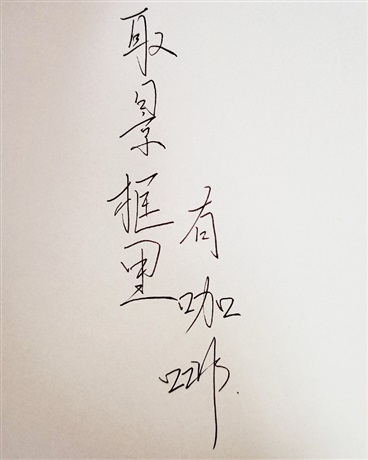 取景框里
有咖啡